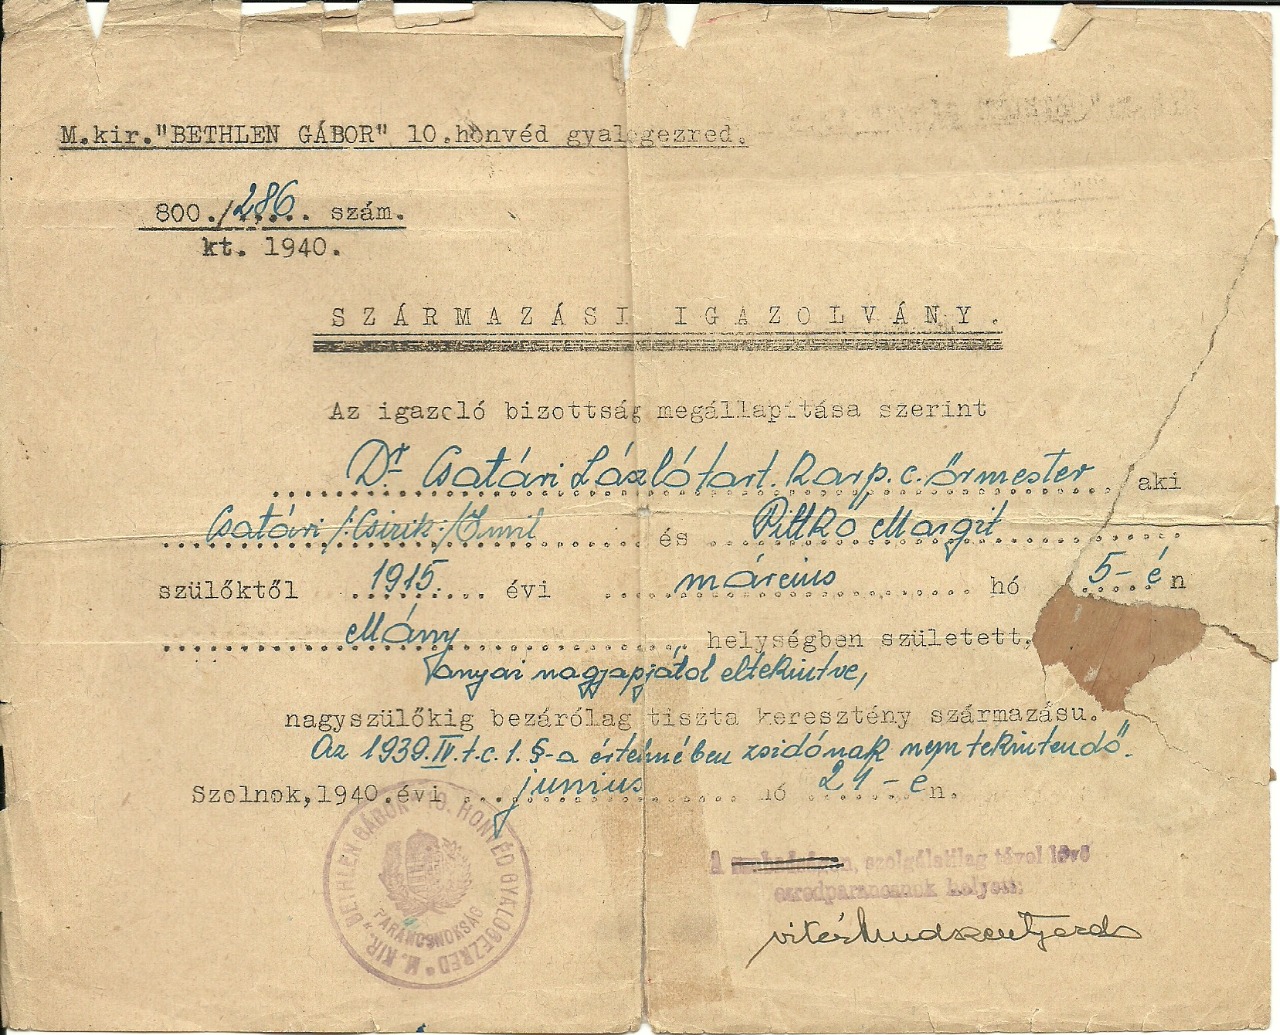 M.kir."BETHLEN GÁBOR" 10.honvéd gyalogezred.
800./286 szám.
kt. 1940.
SZÁRMAZÁSI IGAZOLVÁNY.
Az igazoló bizottság megállapítása szerint
Dr. Csatári László tart. karp. c. őrmester aki
Csatári /:Csizik:/ Emil és Pittkő Margit
szülőktől 1915. évi március hó 5-én
Mány helységben született,
anyai nagyapjától eltekintve,
nagyszülőkig bezárólag tiszta keresztény származásu.
Az 1939. IV. t.c. 1. §-a értelmében zsidónak nem tekintendő.
Szolnok, 1940. évi junius hó 21-én.
M. KIR. "BETHLEN GÁBOR" 10. HONVÉD GYALOGEZRED
PARANCSNOKSÁG
A szabadságon, szolgálatilag távol lévő
ezredparancsnok helyett:
vitéz